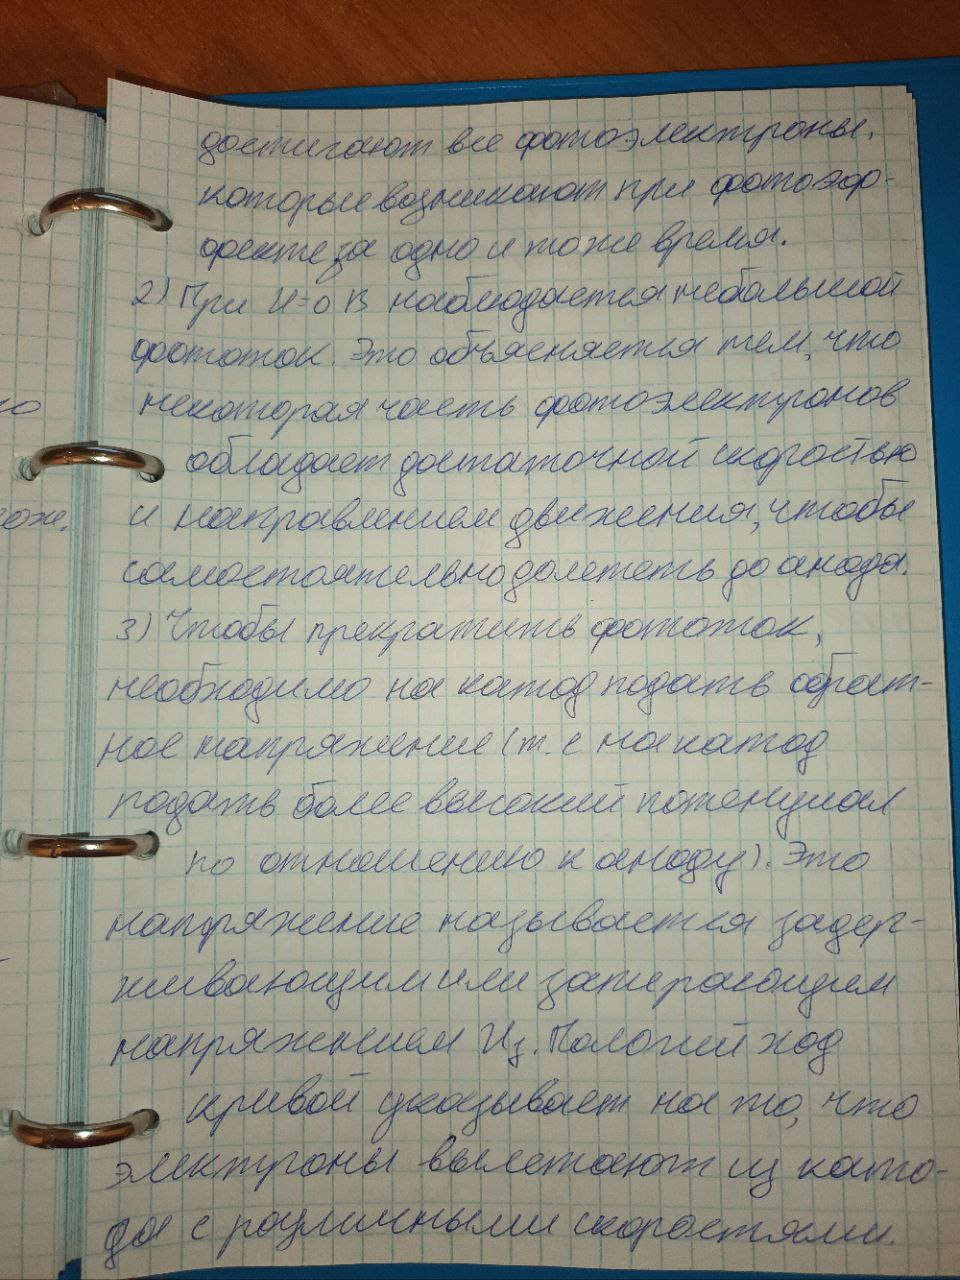 достигают все фотоэлектроны,
которые возникают при фотоэф-
фекте за одно и тоже время.
2) При U=0 В наблюдается небольшой
фототок. Это объясняется тем, что
некоторая часть фотоэлектронов
обладает достаточной скоростью
и направлением движения, чтобы
самостоятельно долететь до анода.
3) Чтобы прекратить фототок,
необходимо на катод подать обрат-
ное напряжение (т.е на катод
подать более высокий потенциал
по отношению к аноду). Это
напряжение называется задер-
живающим или запирающим
напряжением Uз. Пологий ход
кривой указывает на то, что
электроны вылетают из като-
да с различными скоростями.